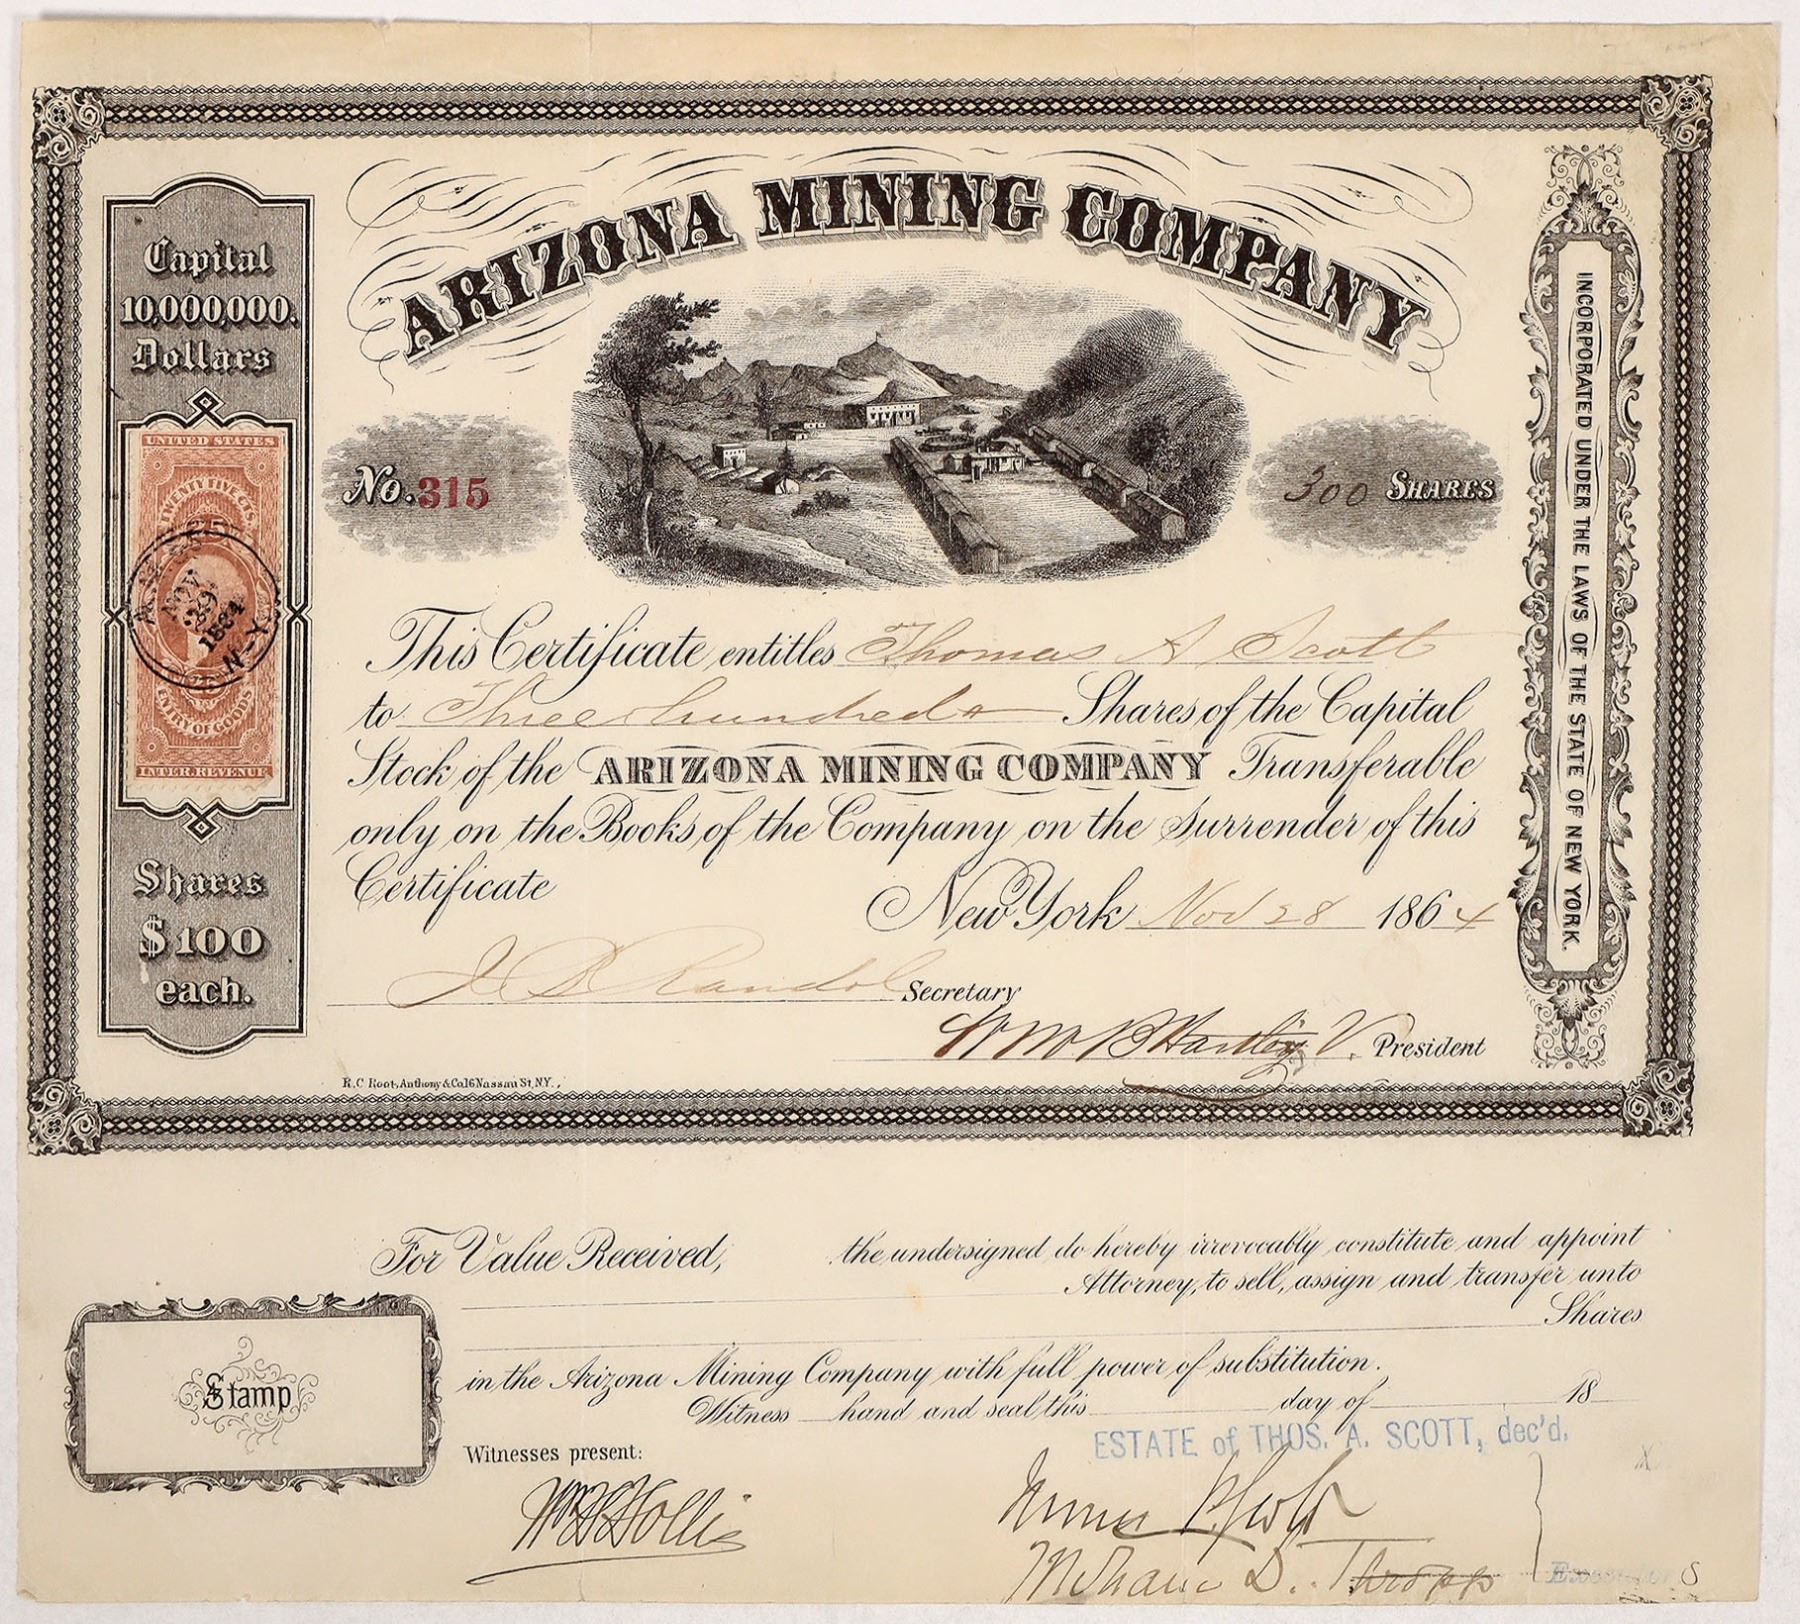 ARIZONA MINING COMPANY
Capital
10,000,000.
Dollars
UNITED STATES
TWENTY FIVE CTS.
NOV.
29
1864
N-Y
ENTRY OF GOODS
INTER. REVENUE
Shares
$100
each.
No. 315
300 SHARES
INCORPORATED UNDER THE LAWS OF THE STATE OF NEW YORK.
This Certificate entitles Thomas A Scott
to Three hundred Shares of the Capital
Stock of the ARIZONA MINING COMPANY Transferable
only on the Books of the Company on the Surrender of this
Certificate
New York Nov 28 1864
J B Randol Secretary
Wm B Hartley V. President
R.C Root, Anthony & Co 16 Nassau St. N.Y.
For Value Received, the undersigned do hereby irrevocably constitute and appoint
Attorney, to sell, assign and transfer unto
Shares
in the Arizona Mining Company with full power of substitution.
Witness hand and seal this day of 18
Stamp
ESTATE of THOS. A. SCOTT, dec'd.
Witnesses present:
Wm H Hollis
D. Thropp